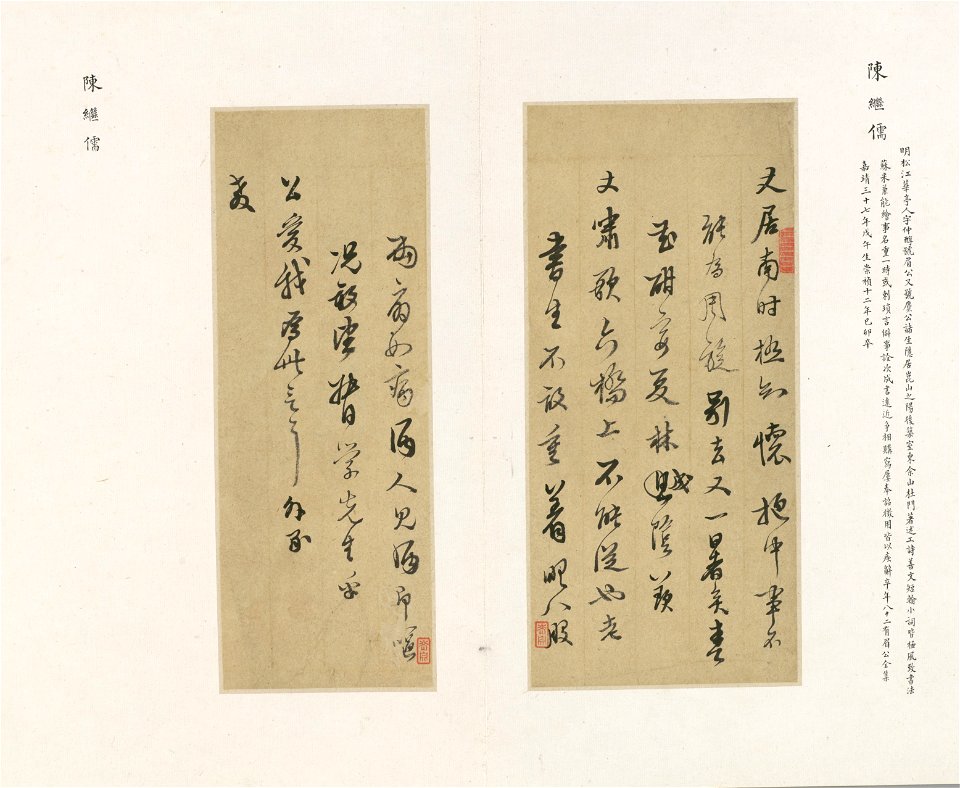 陳繼儒
明松江華亭人字仲醇號眉公又號麋公諸生隱居崑山之陽後築室東佘山杜門著述工詩善文短翰小詞皆極風致書法
蘇米兼能繪事名重一時或刺瑣言僻事詮次成書遠近爭相購寫屢奉詔徵用皆以疾辭卒年八十二有眉公全集
嘉靖三十七年戊午生崇禎十二年己卯卒
丈居南時極知懷抱中事不
能為周旋別去又一暑矣春
花酣
丈嘯歌六橋上不能從也老
書生不敢重著眼八股
兩
況敢望督學先生乎
公愛我為此言耳
陳繼儒